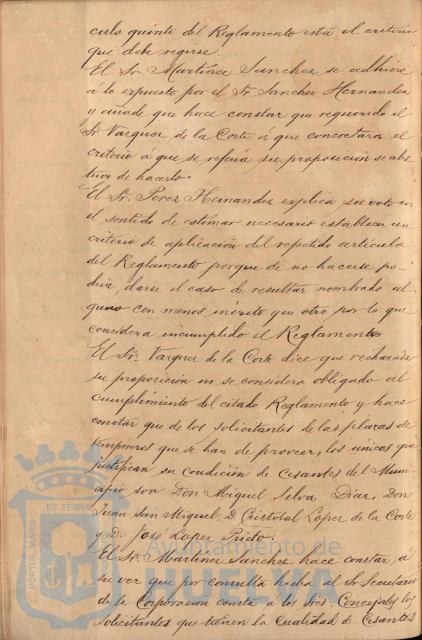 culo quinto del Reglamento está el criterio
que debe regirse.
El Sr. Martinez Sanchez se adhiere
á lo expuesto por el Sr Sanchez Hernandez
y añade que hace constar que requerido el
Sr Vazquez de la Corte á que concretara el
criterio á que se referia su proposicion se abs
tuvo de hacerlo.
El Sr. Perez Hernandez explica su voto en
el sentido de estimar necesario establecer un
criterio de aplicación del repetido artículo
del Reglamento porque de no hacerse po-
dria darse el caso de resultar nombrado al
guno con menos mérito que otro por lo que
considera incumplido el Reglamento
El Sr. Vazquez de la Corte dice que rechazada
su proposición no se considera obligado al
cumplimiento del citado Reglamento y hace
constar que de los solicitantes de las plazas de
temporeros que se han de proveer, los unicos que
justifican su condición de Cesantes del Muni
cipio son Don Miguel Silva Diaz, Don
Juan San Miguel, D. Cristobal Lopez de la Corte
y D. José Lopez Prieto.
El Sr. Martinez Sanchez hace constar, á
su vez que por consulta hecha al Sr Secretario
de la Corporacion consta á los Sres. Concejales los
solicitantes que tienen la cualidad de Cesantes
PORTUS MARIS ET TERRAE
Ayuntamiento de
HUELVA